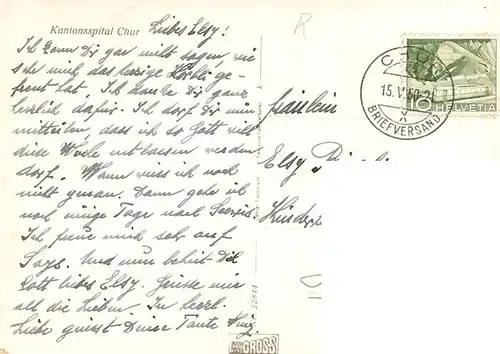 Kantonsspital Chur Liebes Elsy!
Ich kann Dir gar nicht sagen, wie
sehr mich das herzige Körbli ge-
freut hat. Ich danke Dir ganz
herzlich dafür. Ich darf Dir nun
mitteilen, dass ich so Gott will
diese Woche entlassen werden
darf. Wann weiss ich noch
nicht genau. Dann gehe ich
noch einige Tage nach Seewis.
Ich freue mich sehr auf
Says. Und nun behüt Dich
Gott liebes Elsy. Grüsse mir
all die Lieben. In herzl.
Liebe grüsst Deine Tante
Fräulein
Elsy
CHUR
15.V.50
X
BRIEFVERSAND
HELVETIA
22844
GROSS